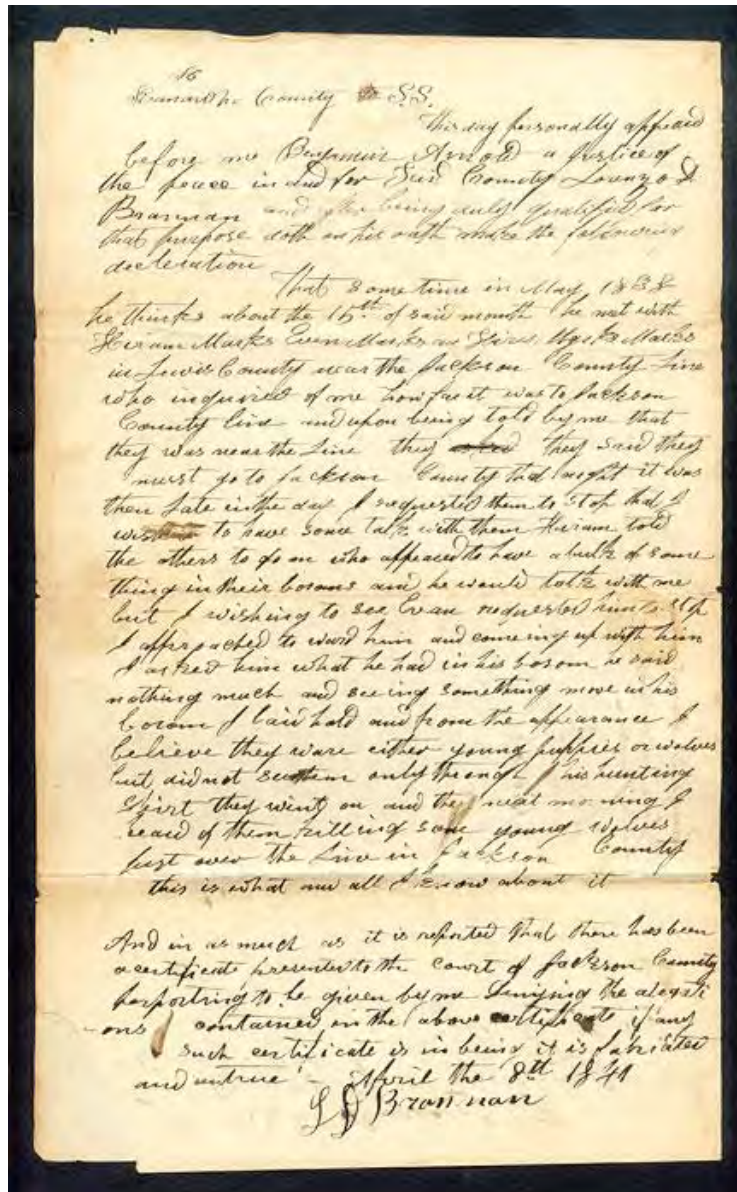 Kanawha County SS.
This day personally appeard
before me Benjamin Arnold a Justice of
the peace in and for Said County Loranzo D
Brannan and after being duly qualified for
that purpose doth on his oath make the following
decleration
That some time in May 1838
he thinks about the 15th of said month he met with
Hiram Marks Evan Marks Marks
in Lewis County near the Jackson County Line
who inquired of me how far it was to Jackson
County line and upon being told by me that
they was near the Line they they said they
must go to Jackson County that night it was
then late in the day I requested them to stop that I
to have some talk with them Hiram told
the others to go on who appeared to have a bulk of some
thing in their bosoms and he would talk with me
but I wishing to see Evan requested him to stop
I approached to ward him and comeing up with him
I asked him what he had in his bosom he said
nothing much and seeing something move in his
bosom I laid hold and from the appearance I
believe they ware either young puppies or wolves
but did not see them only through his hunting
Shirt they went on and the next morning I
heard of them killing some young wolves
Just over the Line in Jackson County
this is what and all I know about it
And in as much as it is reported that there has been
a certificate presented to the Court of Jackson County
perporting to be given by me denying the alegati
ons contained in the above certificate if any
such certificate is in being it is fabricated
and untrue - April the 8th 1841
L D Brannan